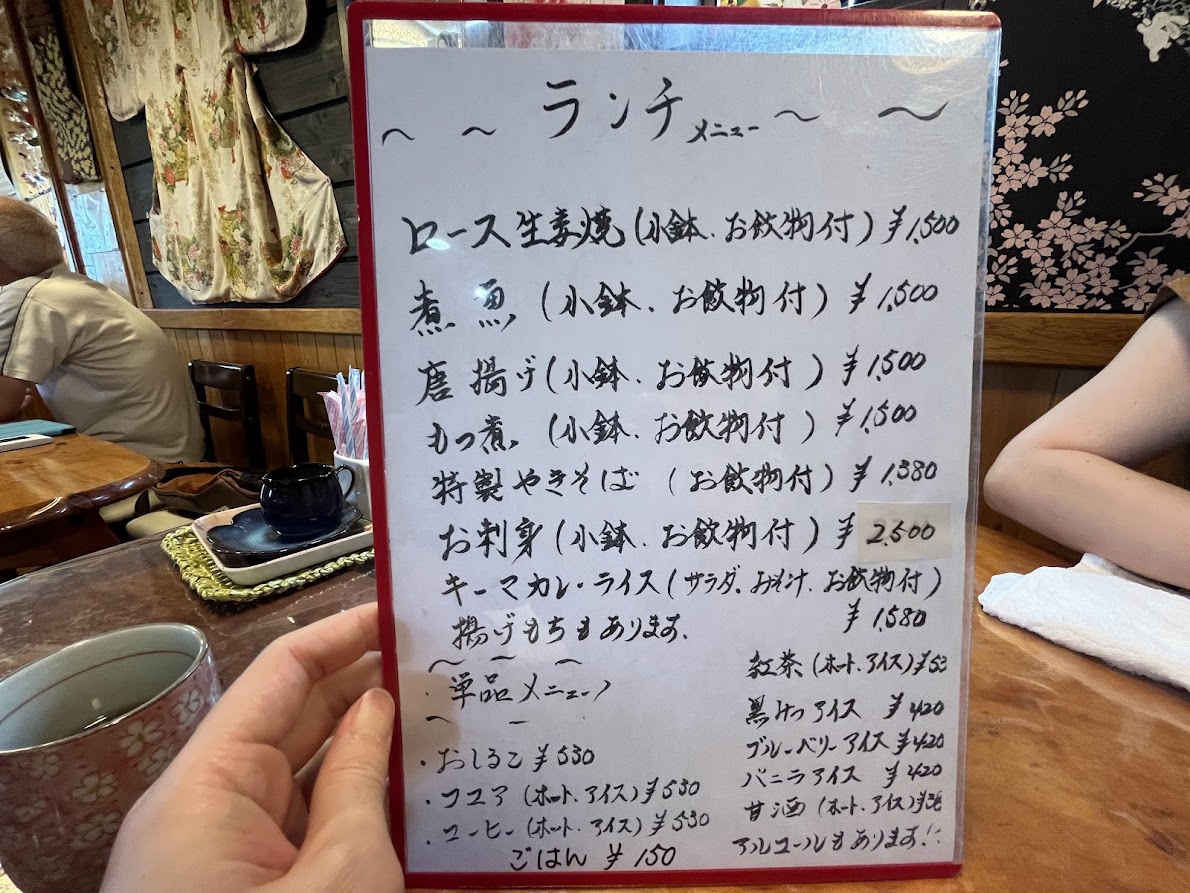 ～ ～ ランチメニュー ～ ～
ロース生姜焼(小鉢、お飲物付) ¥1,500
煮魚 (小鉢、お飲物付) ¥1,500
唐揚げ(小鉢、お飲物付) ¥1,500
もつ煮 (小鉢、お飲物付) ¥1,500
特製やきそば (お飲物付) ¥1,380
お刺身(小鉢、お飲物付) ¥2,500
キーマカレーライス(サラダ、おみそ汁、お飲物付)
¥1,580
揚げもちもあります。
～ ～ ～
・単品メニュー
～ ー
・おしるこ ¥530
・ココア (ホット、アイス) ¥530
・コーヒー (ホット、アイス) ¥530
ごはん ¥150
紅茶 (ホット、アイス) ¥53
黒みつアイス ¥420
ブルーベリーアイス ¥420
バニラアイス ¥420
甘酒 (ホット、アイス)
アルコールもあります!!